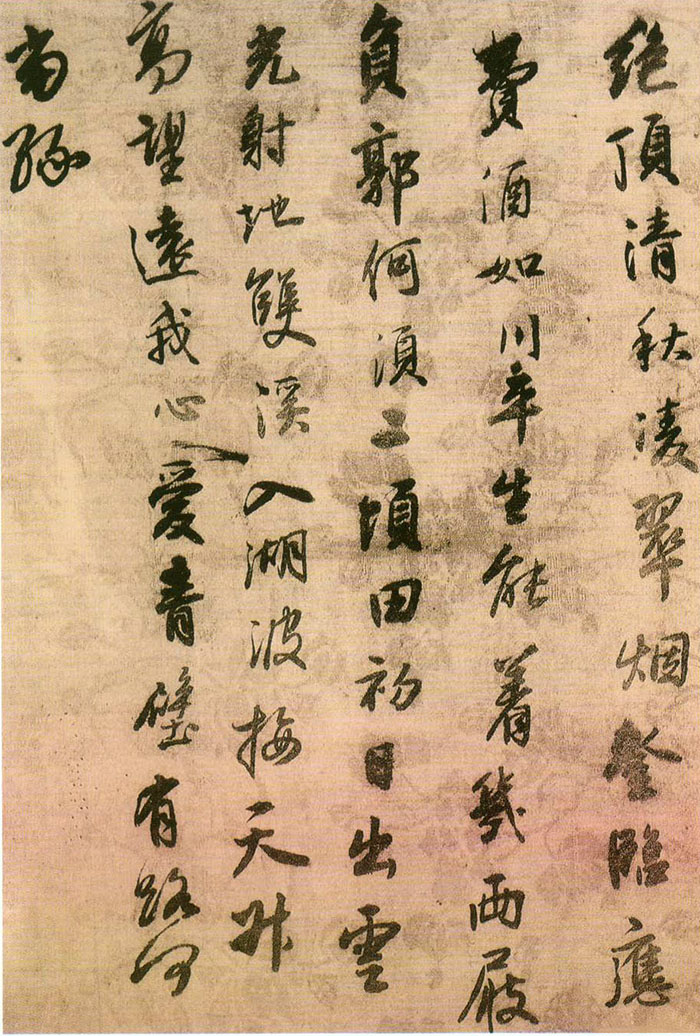 絶頂清秋凌翠烟登臨應
費酒如川平生能着幾兩屐
負郭何須二頃田初日出雲
光射地雙溪入湖波接天升
高望遠我心愛青壁有路何
當緣